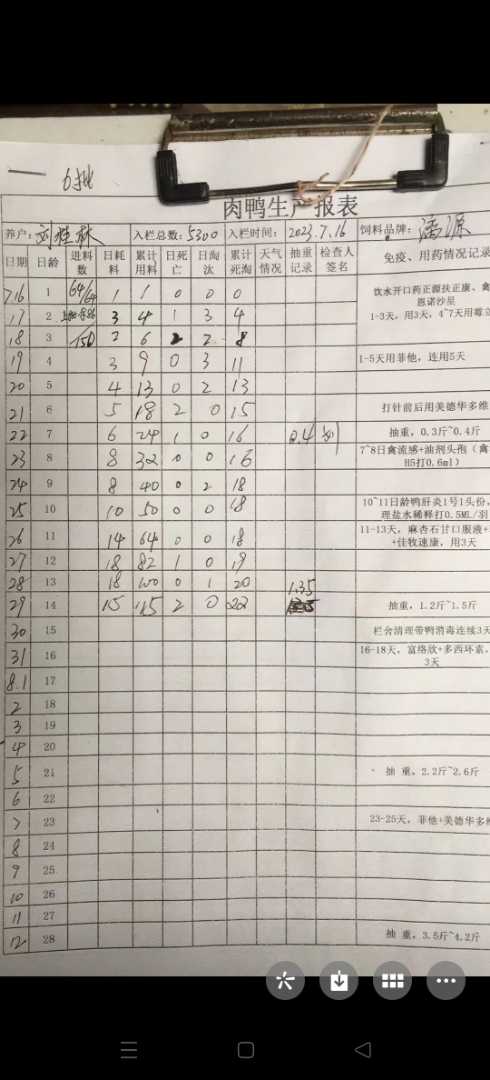 6批
肉鸭生产报表
养户: 刘桂林 入栏总数: 5300 入栏时间: 2023.7.16 饲料品牌:
日期 日龄 进料数 日耗料 累计用料 日死亡 日淘汰 累计死淘 天气情况 抽重记录 检查人签名 免疫、用药情况记录
7.16 1 64/64 1 1 0 0 0 饮水开口药正源扶正康、禽
恩诺沙星
17 2 3 4 1 3 4 1-3天，用3天，4~7天用霉立
18 3 150 2 6 2 2 8
19 4 3 9 0 3 11 1-5天用菲他，连用5天
20 5 4 13 0 2 13
21 6 5 18 2 0 15 打针前后用美德华多维
22 7 6 24 1 0 16 0.4 抽重，0.3斤~0.4斤
23 8 8 32 0 0 16 7~8日禽流感+油剂头孢（禽
H5打0.6ml）
24 9 8 40 0 2 18
25 10 10 50 0 0 18 10~11日龄鸭肝炎1号1头份，
理盐水稀释打0.5ML/羽
26 11 14 64 0 0 18 11-13天，麻杏石甘口服液+
+佳牧速康，用3天
27 12 18 82 1 0 19
28 13 18 100 0 1 20 1.35
29 14 15 115 2 0 22 抽重，1.2斤~1.5斤
30 15 栏舍清理带鸭消毒连续3天
31 16 16-18天，富络欣+多西环素，
3天
8.1 17
2 18
3 19
4 20
5 21 抽重，2.2斤~2.6斤
6 22
7 23 23-25天，菲他+美德华多维
8 24
9 25
10 26
11 27
12 28 抽重，3.5斤~4.2斤